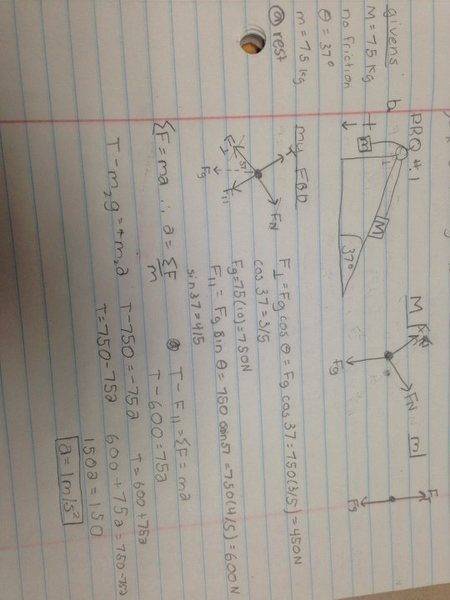 PRQ #1
givens:
b
M = 75 kg
no friction
θ = 37°
m = 75 kg
@ rest
+
m
M
37°
M
FN
Fg
m
Fg
my FBD
FN
F⊥
F11
Fg
F⊥ = Fg cos θ = Fg cos 37 = 750(3/5) = 450N
cos 37 = 3/5
Fg = 75(10) = 750N
F11 = Fg sin θ = 750 cos 37 = 750(4/5) = 600N
sin 37 = 4/5
ΣF = ma ∴ a = ΣF/m
T - F11 = ΣF = ma
T - 600 = 75a
T = 600 + 75a
T - m₂g = + m₂a
T - 750 = -75a
T = 750 - 75a
600 + 75a = 750 - 75a
150a = 150
a = 1 m/s²